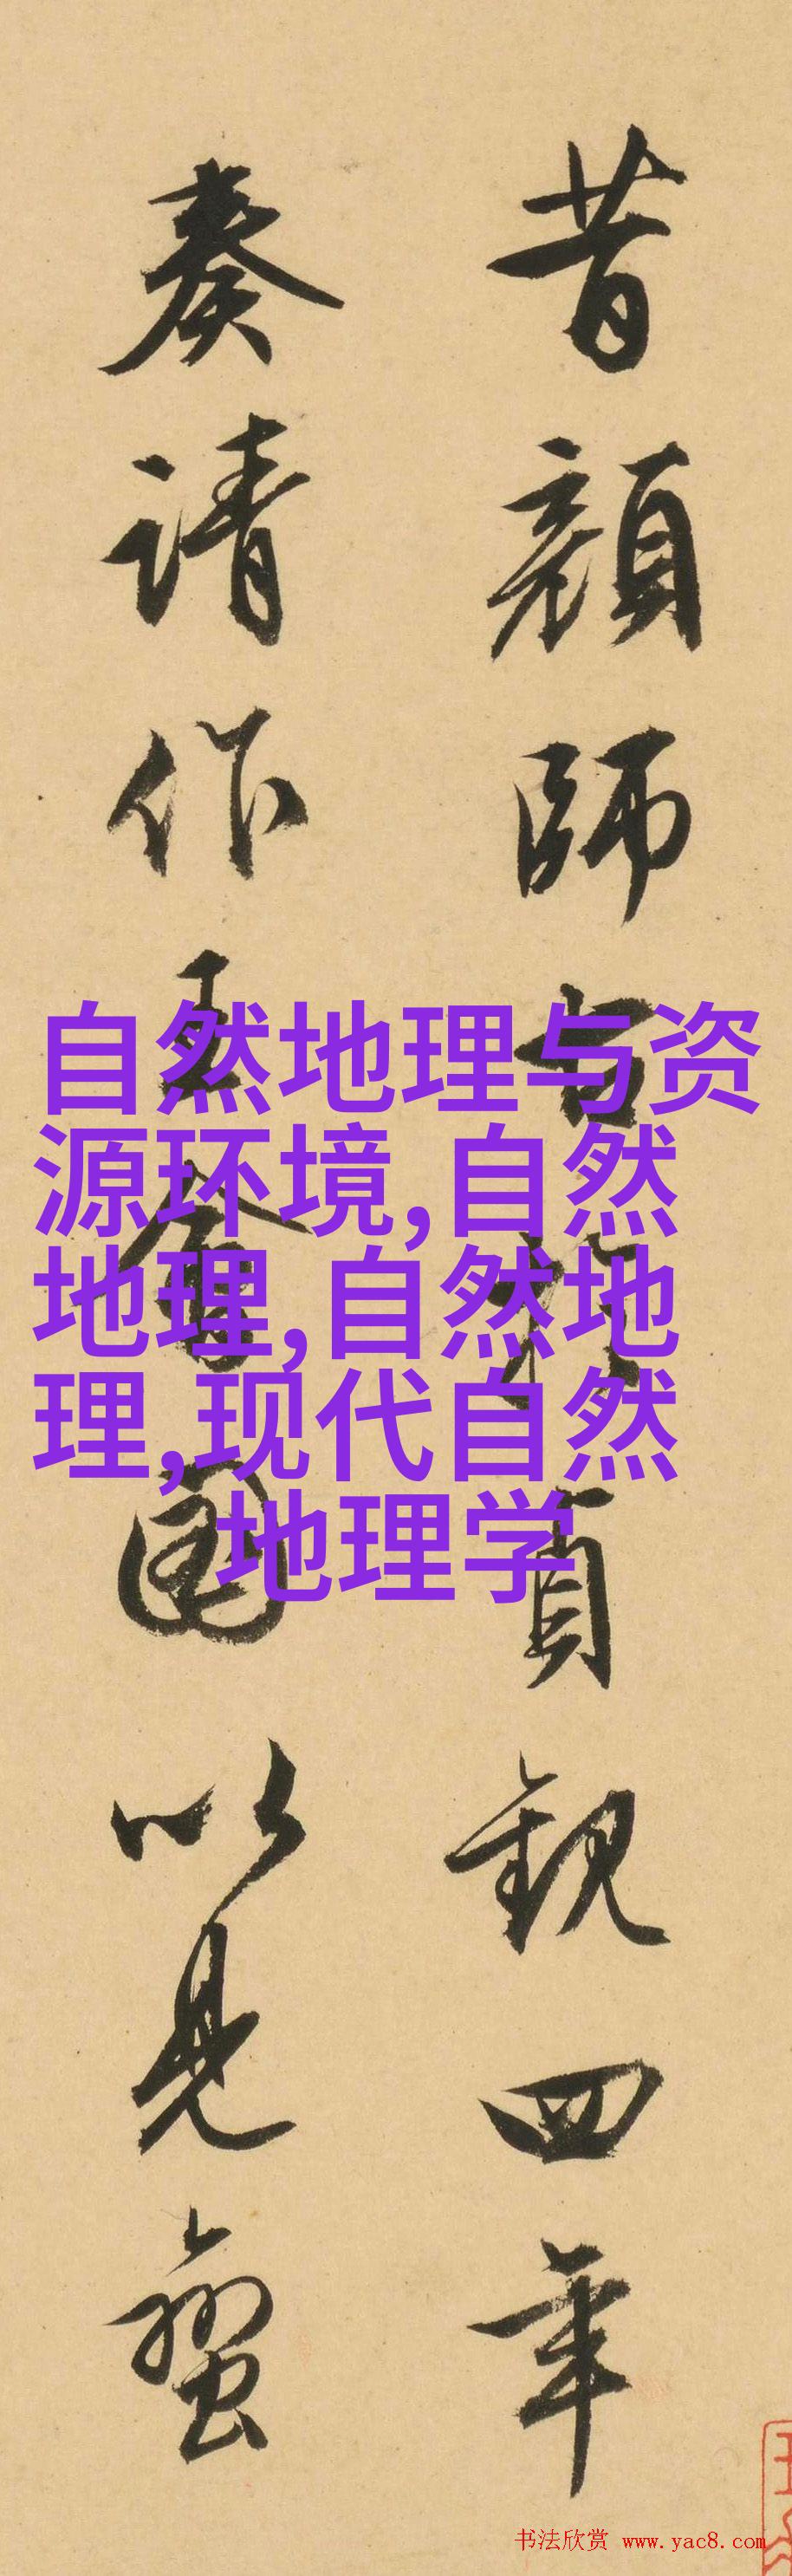 昔顔師古於貞觀四年
奏請作王會圖以見蠻
自然地理与资
源环境,自然
地理,自然地
理,现代自然
地理学
书法欣赏 www.yac8.com